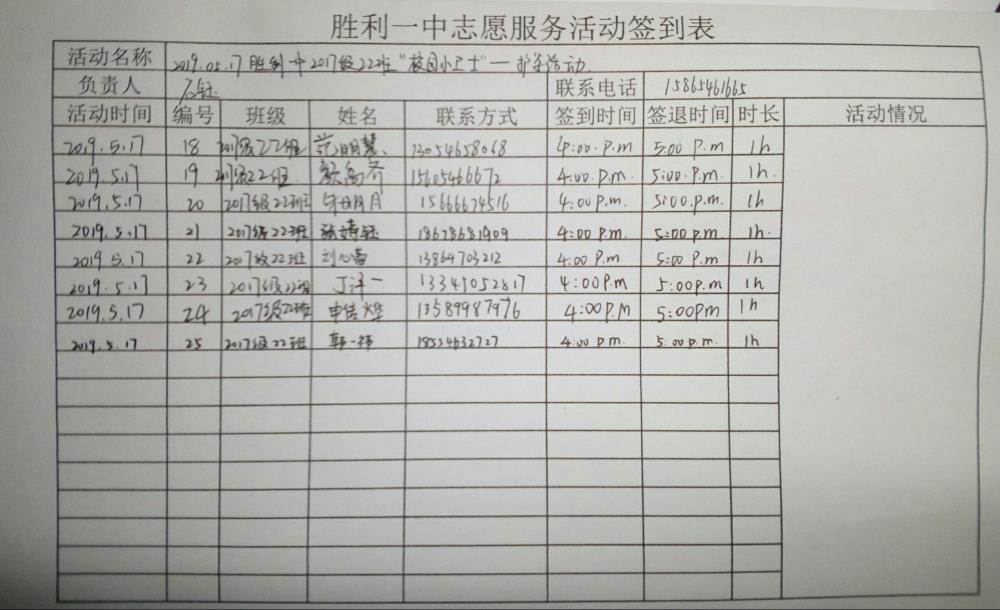 胜利一中志愿服务活动签到表
活动名称 2019.05.17 胜利一中2017级22班"校园小卫士"一护学活动
负责人 联系电话 15865461665
活动时间 编号 班级 姓名 联系方式 签到时间 签退时间 时长 活动情况
2019.5.17 18 2017级22班 范明慧 13054658068 4:00.P.M 5:00 P.m 1h
2019.5.17 19 2017级22班 15605466672 4:00.P.m. 5:00.P.m. 1h.
2019.5.17 20 2017级22班 明月 15666674516 4:00P.m. 5:00.P.m. 1h
2019.5.17 21 2017级22班 张婷钰 18678681909 4:00P.m. 5:00P.m. 1h.
2019 5.17 22 2017级22班 刘心蕾 13864703212 4:00 P.m 5:00 P.m 1h
2019.5.17 23 2017级22班 丁泽一 13345052817 4:00P.m 5:00P.m. 1h
2019.5.17 24 2017级22班 申佳烨 13589987976 4:00P.M 5:00PM 1h
2019.5.17 25 2017级22班 韩一祎 18554632727 4:00 P.m. 5:00 P.m. 1h